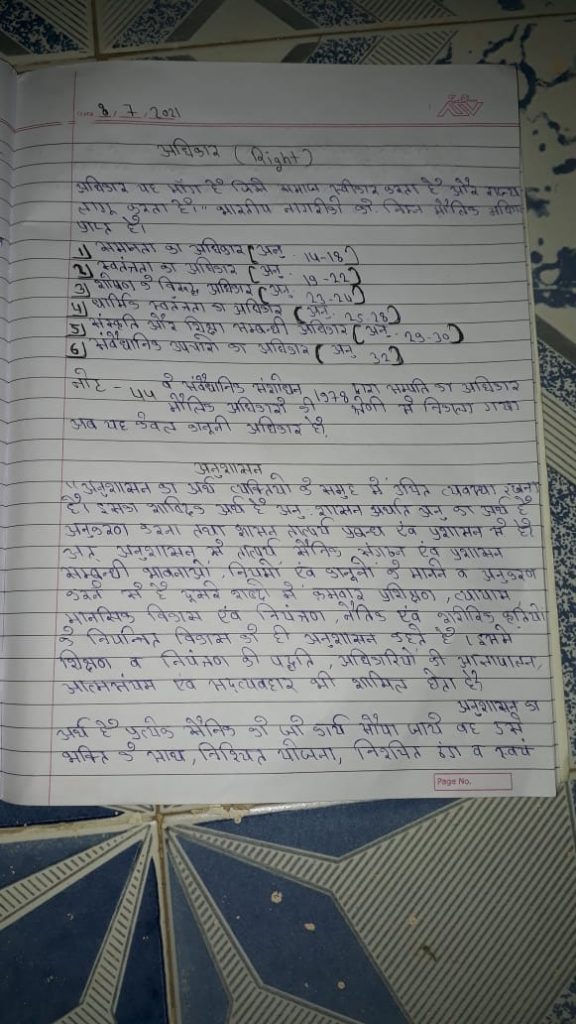 DATE 8, 7, 2021
अधिकार (Right)
अधिकार वह माँग है जिसे समाज स्वीकार करता है और राज्य
लागू करता है।" भारतीय नागरिकों को निम्न मौलिक अधि
प्राप्त है।
1) समानता का अधिकार (अनु. 14-18)
2) स्वतंत्रता का अधिकार (अनु. 19-22)
3) शोषण के विरूद्ध अधिकार (अनु. 23-24)
4) धार्मिक स्वतंत्रता का अधिकार (अनु. 25-28)
5) संस्कृति और शिक्षा सम्बन्धी अधिकार (अनु. 29-30)
6) संवैधानिक उपचारो का अधिकार (अनु 32)
नोट - 44 वे संवैधानिक संशोधन 1978 द्वारा सम्पति का अधिकार
मौलिक अधिकारों की श्रेणी में निकाला गया
अब यह केवल कानूनी अधिकार है.
अनुशासन
"अनुशासन का अर्थ व्यक्तियों के समूह में उचित व्यवस्था रखना
है। इसका शाब्दिक अर्थ है अनु शासन अर्थात अनु का अर्थ है
अनुकरण करना तथा शासन तात्पर्य प्रबन्ध एंव प्रशासन से है।
अत अनुशासन से तात्पर्य सैनिक संगठन एंव प्रशासन
सम्बन्धी भावनाओं, नियमों एंव कानूनों के मानने व अनुकरण
करने से है दूसरे शब्दों में क्रमवार प्रशिक्षण, व्यायाम,
मानसिक विकास एंव नियंत्रण, नैतिक एंव शारीरिक
के नियन्त्रित विकास को ही अनुशासन कहते है। इसमें
शिक्षण व नियंत्रण की पद्धति, अधिकारियों की आज्ञापालन,
आत्मसंयम एंव सदव्यवहार भी शामिल होता है?
अनुशासन का
अर्थ है प्रत्येक सैनिक को जो कार्य सौंपा जाये वह उसे
भक्ति के साथ, निश्चित योजना, निश्चित ढंग व स्वयं
Page No.